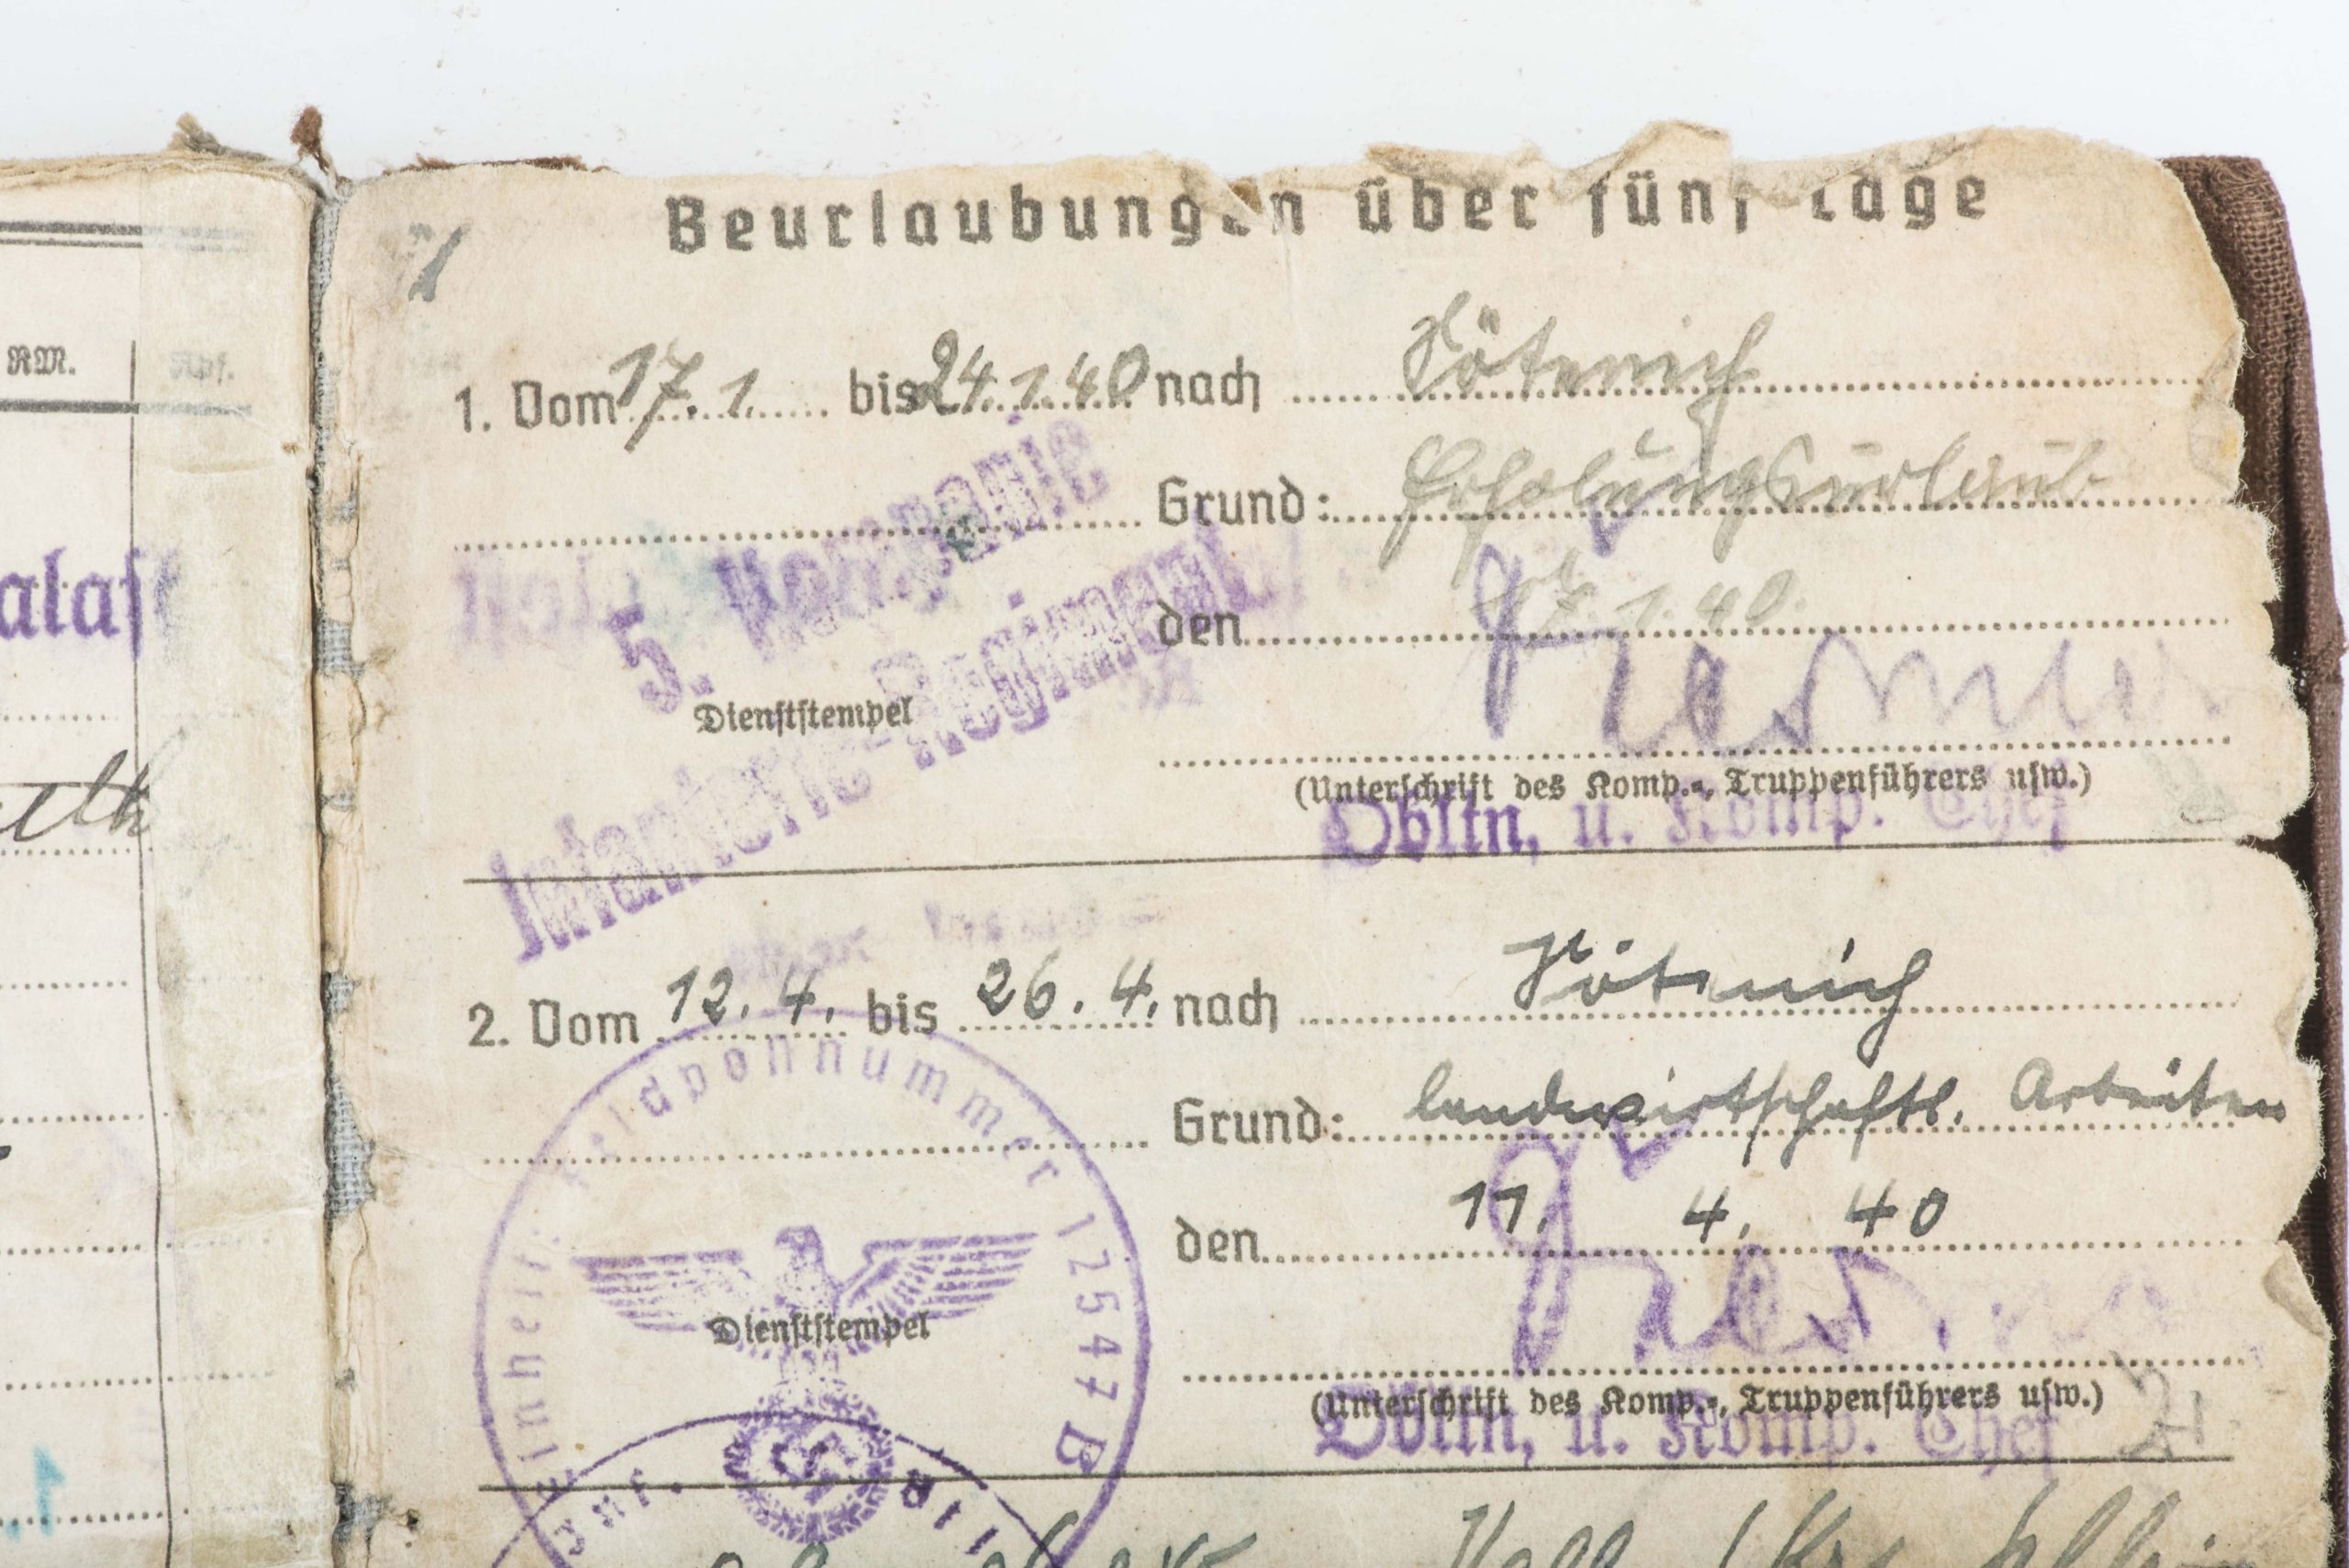 RM.
Rpf.
Beurlaubungen über fünf Tage
1. Vom 17.1. bis 24.1.40 nach Kötenich
Grund: Erholungsurlaub
5. Kompanie
Infanterie-Regiment
den 17.1.40.
Dienststempel
(Unterschrift des Komp.-, Truppenführers usw.)
Obltn, u. Komp. Chef
2. Vom 12.4. bis 26.4. nach Kötenich
Grund: landwirtschaftl. Arbeiten
den 11. 4. 40
Einheit: Feldpostnummer 12547 B
Dienststempel
(Unterschrift des Komp.-, Truppenführers usw.)
Obltn, u. Komp. Chef
Inf.